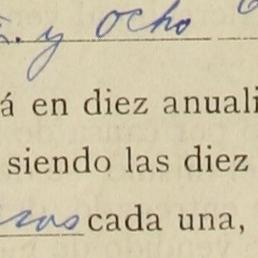 y ocho
á en diez anuali
siendo las diez
cada una,